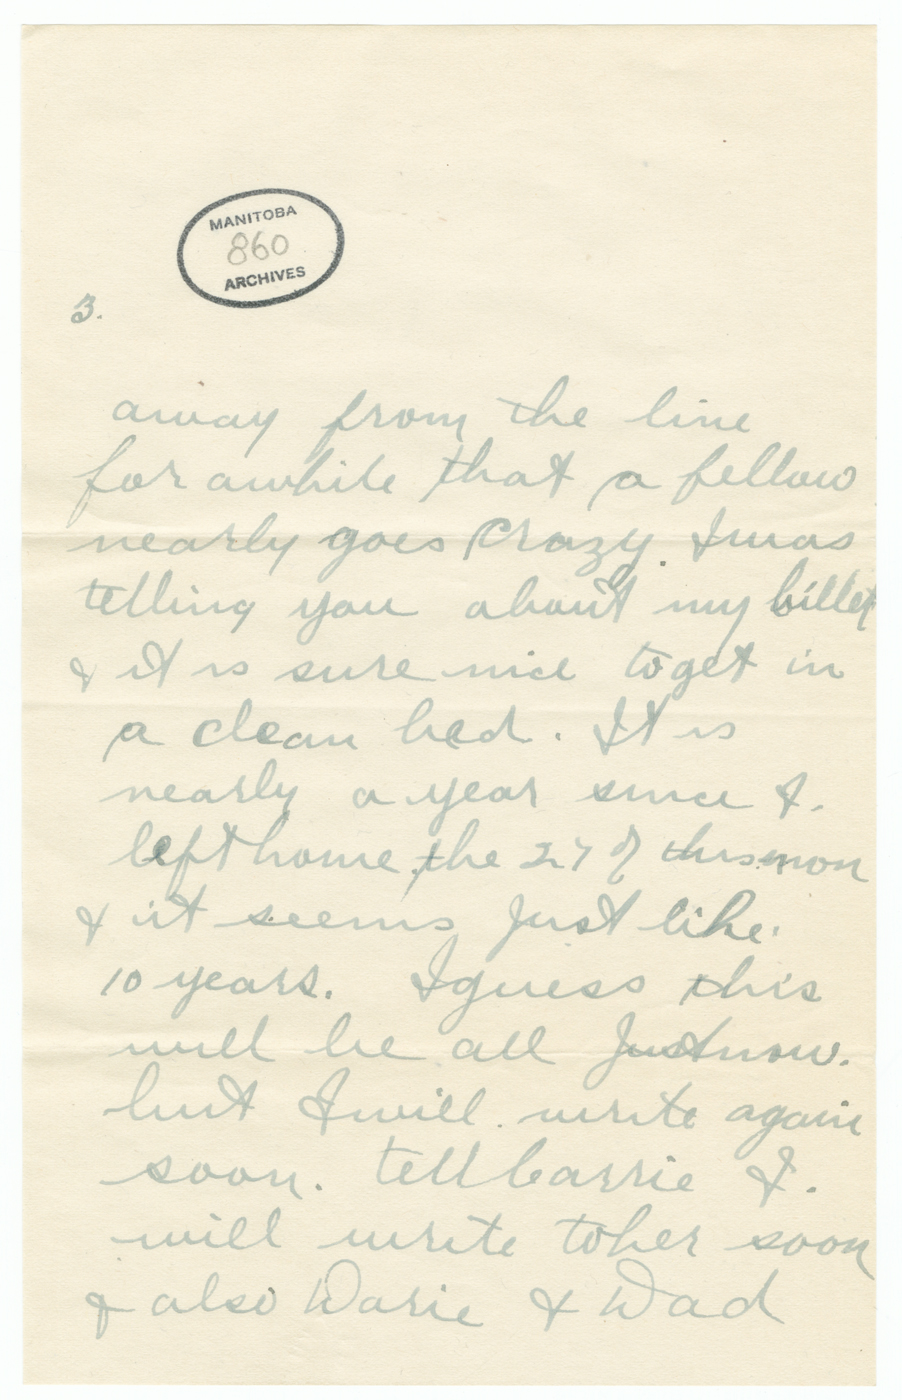 MANITOBA
860
ARCHIVES
3.
away from the line
for awhile that a fellow
nearly goes crazy. I was
telling you about my billet
& it is sure nice to get in
a clean bed. It is
nearly a year since I.
left home, the 27 of this mon
& it seems just like.
10 years. I guess this
will be all Just now.
but I will. write again
soon. tell Carrie I.
will write to her soon
& also Dorie & Dad